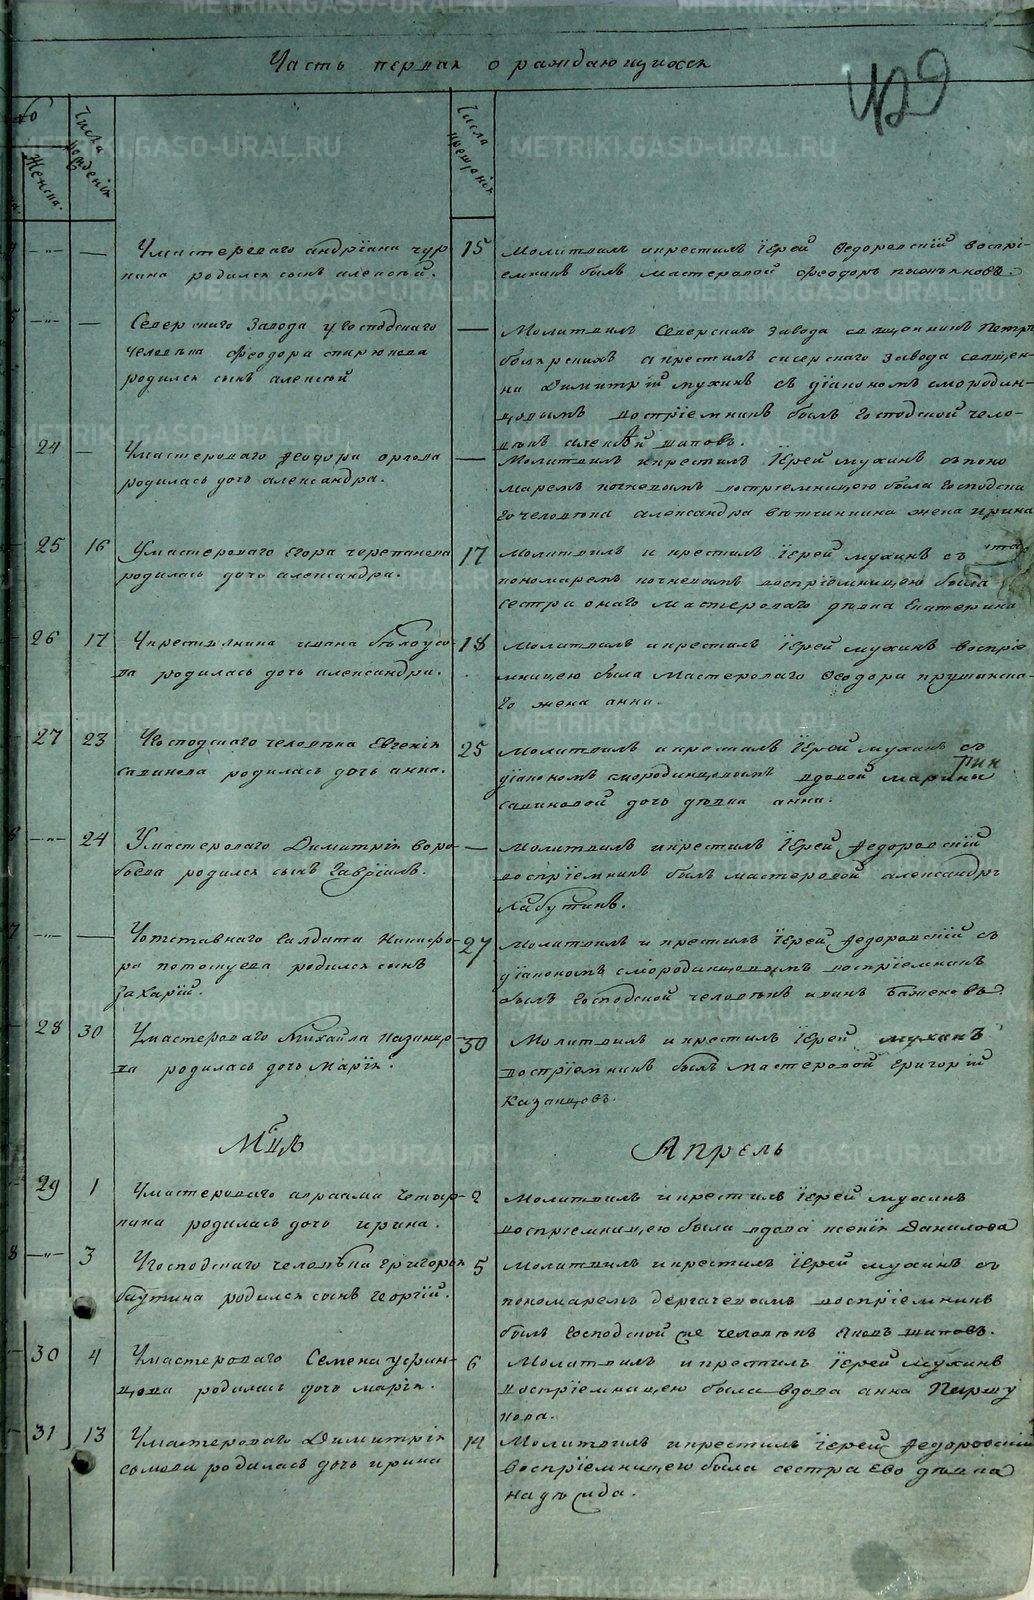 Часть первая о раждающихся
429
Женска.
Числа рожденія
Числа крещенія
У мастероваго андріана чур
кина родился сынъ алексѣй.
15
Молитвилъ и крестилъ Іерей Федоровскій воспрі-
емникъ былъ мастеровой Феодоръ
Северскаго Завода у Господскаго
человѣка Феодора спирюкова
родился сынъ алексѣй
Молитвилъ Северскаго завода священникъ Петръ
боярскихъ а крестилъ сисерскаго завода священ-
ни Димитрій мухинъ съ діакономъ смородин-
цовымъ воспріемникъ былъ Господской чело-
вѣкъ алексѣй шиповъ.
24
У мастероваго Феодора орлова
родилась дочь александра.
Молитвилъ и крестилъ Іерей мухинъ съ поно
маремъ почневымъ воспріемницею была Господска
го человѣка александра вяткинкина жена ирина
25 16
У мастероваго Егора черепанова
родилась дочь александра.
17
Молитвилъ и крестилъ Іерей мухинъ съ
пономаремъ почневымъ воспріемницею была
сестра онаго мастероваго дѣвка Екатерина
26 17
У крестьянина ивана бѣлоусо-
ва родилась дочь александра.
18
Молитвилъ и крестилъ Іерей мухинъ воспріе
мницею была мастероваго Феодора прушинска-
го жена анна.
27 23
У Господскаго человѣка Евгенія
савинова родилась дочь анна.
25
Молитвилъ и крестилъ Іерей мухинъ съ
діакономъ смородинцовымъ вдовой марины
савиновой дочь дѣвка анна.
24
У мастероваго Димитрія воро-
боева родился сынъ Гавріилъ.
Молитвилъ и крестилъ Іерей Федоровскій
воспріемникъ былъ мастеровой александръ
Лабутинъ.
У отставнаго Салдата Никифо-
ра потоскуева родился сынъ
Захарій.
27
Молитвилъ и крестилъ Іерей Федоровскій съ
діакономъ смородинцовымъ воспріемникъ
былъ Господской человѣкъ иванъ Баженовъ.
28 30
У мастероваго Михайла казанцо-
ва родилась дочь Марія.
30
Молитвилъ и крестилъ Іерей мухинъ
воспріемникъ былъ мастеровой Григорій
Казанцовъ.
Мцъ Апрель
29 1
У мастероваго авраама четыр-
кина родилась дочь ирина.
2
Молитвилъ и крестилъ Іерей мухинъ
воспріемницею была вдова ксенія Данилова
3
У господскаго человѣка григорья
баутина родился сынъ Георгій.
5
Молитвилъ и крестилъ Іерей мухинъ съ
пономаремъ дергачевымъ воспріемникъ
былъ Господской же человѣкъ Яковъ шиповъ.
30 4
У мастероваго Семена уфин-
цова родилась дочь марія.
6
Молитвилъ и крестилъ Іерей мухинъ
воспріемницею была вдова анна Паршу
кова.
31 13
У мастероваго Димитрія
сомова родилась дочь ирина
14
Молитвилъ и крестилъ Іерей Федоровскій
воспріемницею была сестра Его дѣвка
надѣжда.